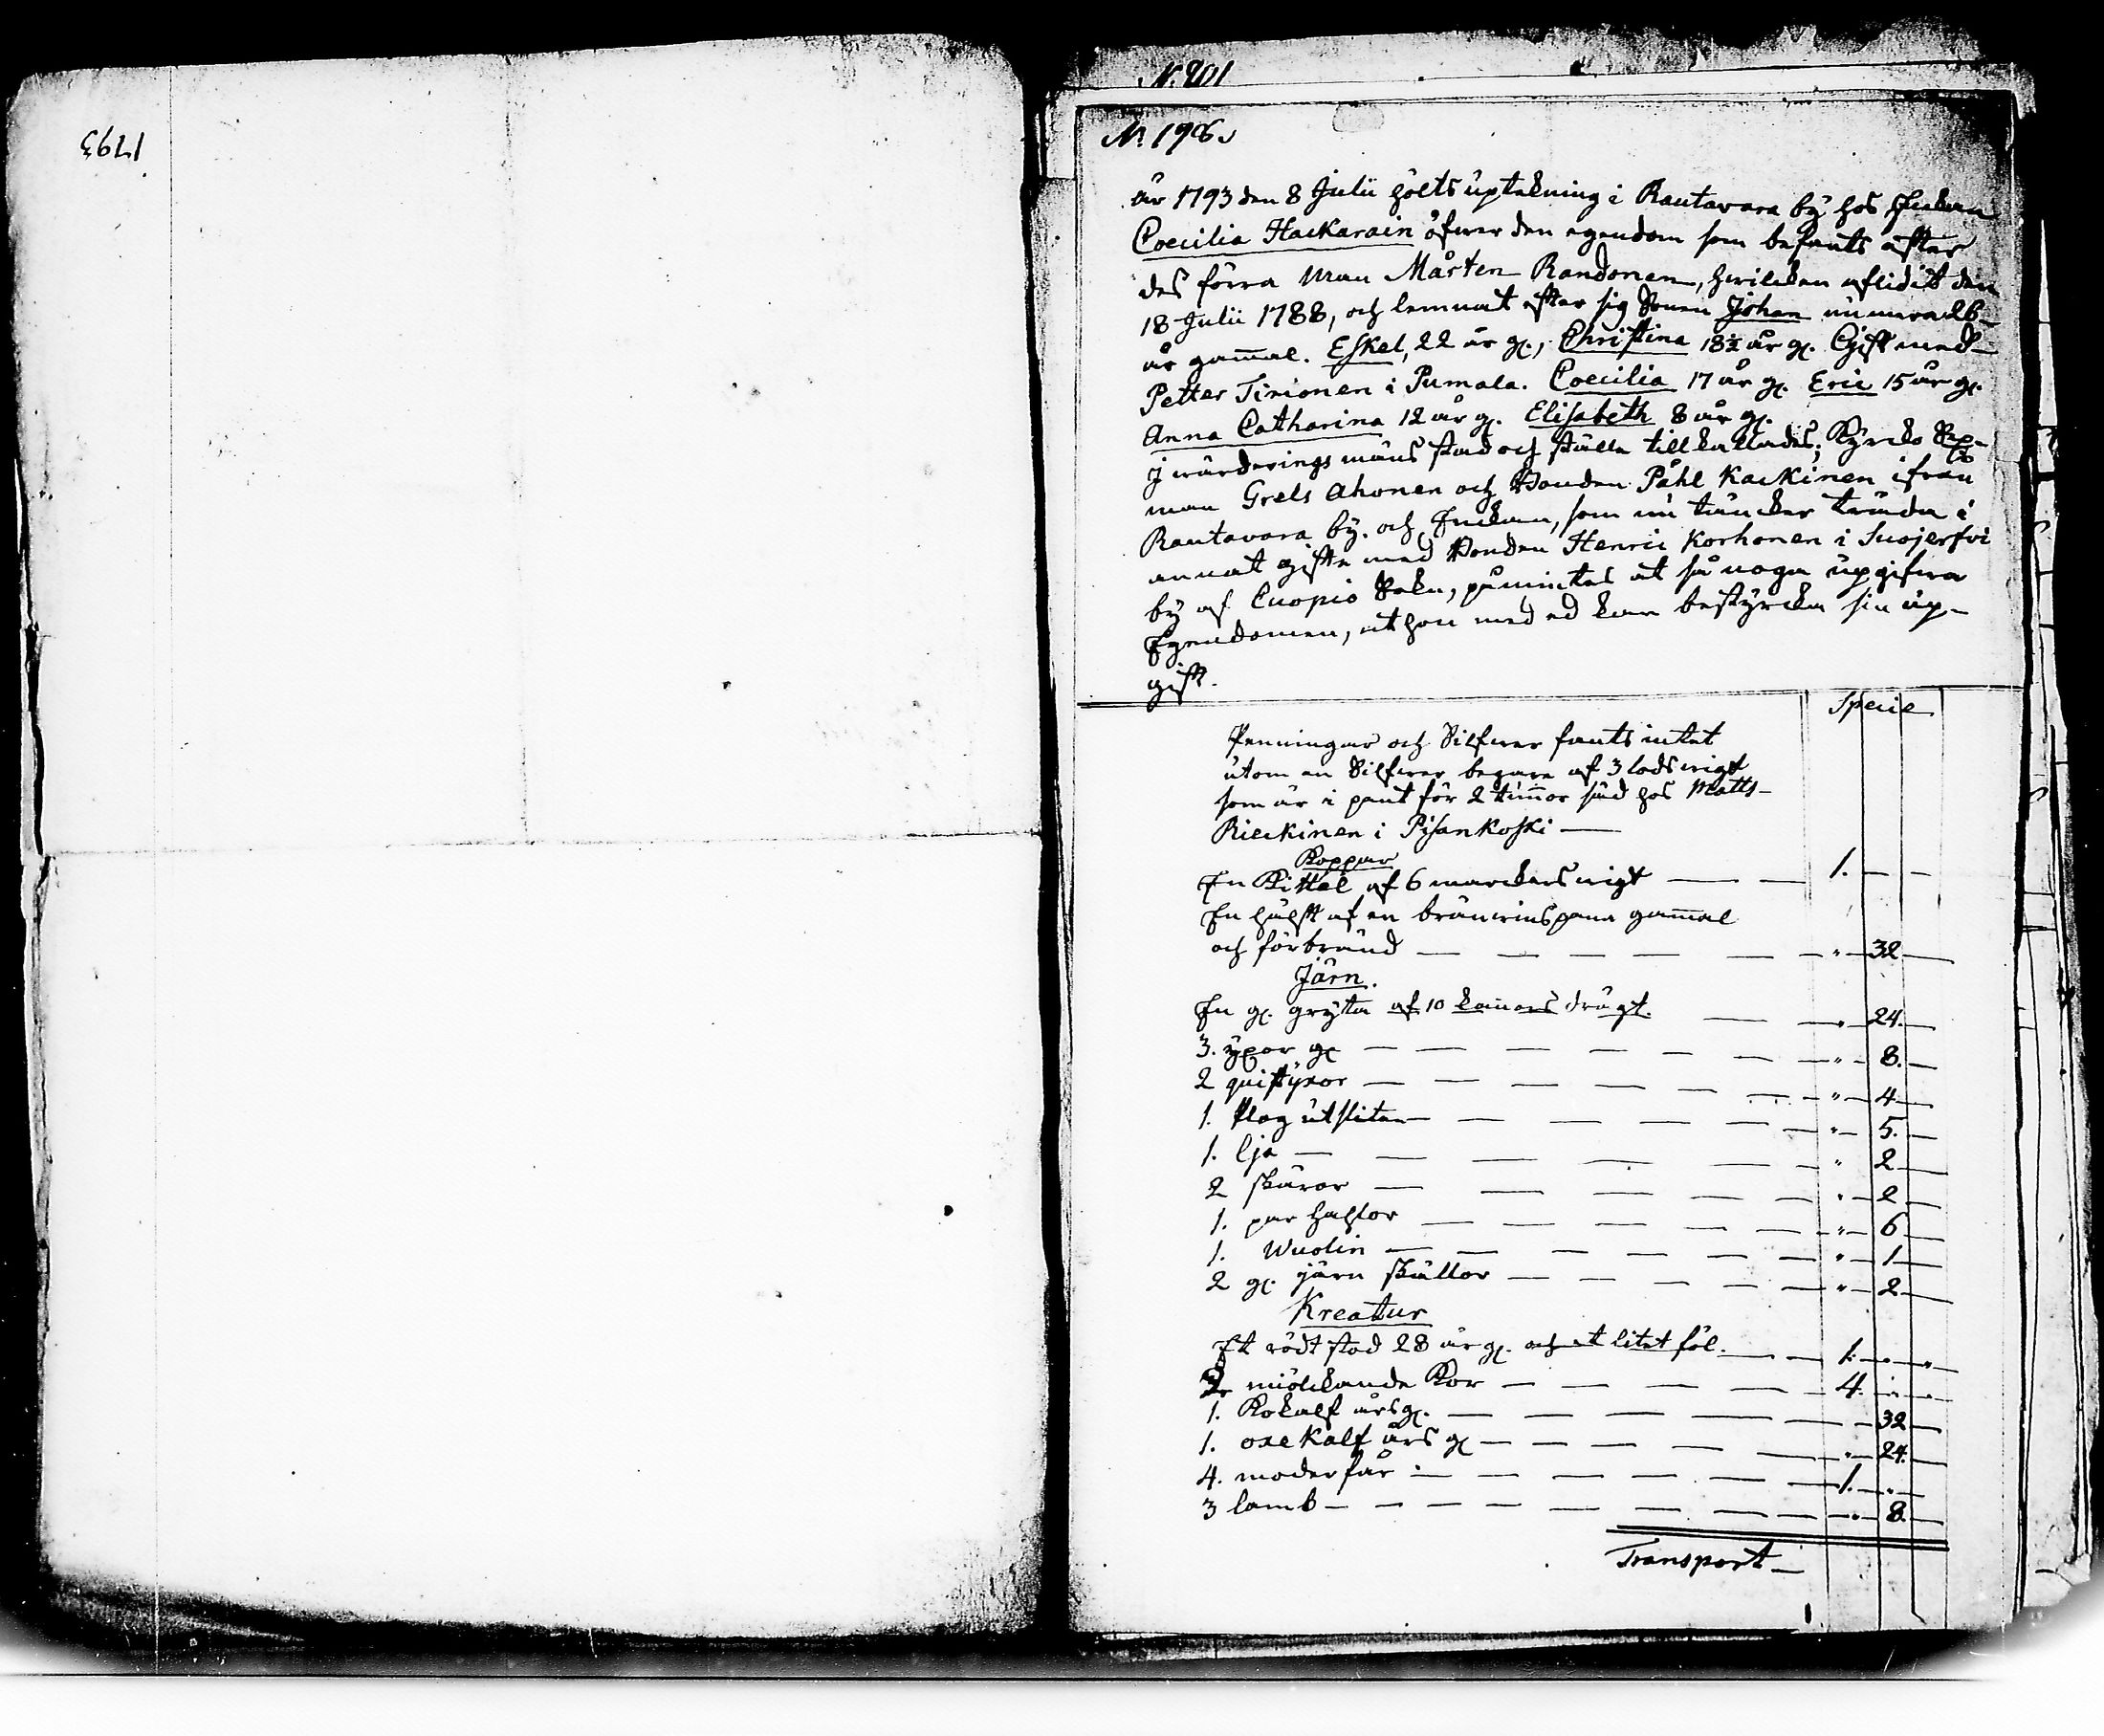 1793
N. 201
N. 196.
år 1793 den 8 Julii hölts uptekning i Rautavara by hos Enckan
Coecilia Hackarain öfwer den egendom som befants efter
des förra Man Mårten Randonen, hwilcken aflidit den
18 Julii 1788, och lemnat efter sig Sonen Johan numera 26
år gam̄al. Eskel, 22 år gl., Christina 18½ år gl. Gift med
Petter Tirionen i Pumala. Coecilia 17 år gl. Eric 15 år gl.
Anna Catharina 12 år gl. Elisabeth 8 år gl.
J wärderings mäns stad och ställe tillkallades; Kyrcko Sex-
man Grels Ahonen och Bonden Påhl Kackinen ifrån
Rautavara by. och Enckan, som nu täncker träda i
annat gifte med Bonden Henric Korhonen i Suojerfvi
by af Cuopio Sokn, påmintes at så noga upgifwa
Egendomen, at hon med ed kan bestyrcka sin up-
gift.
Specie
Penningar och Silfwer fants intet
utom en Silfwer begare af 3 lods wigt
som är i pant för 2 tun̄or säd hos Matts
Rieckinen i Pisankoski —
Koppar
En Kittel af 6 marckers wigt — — 1. — —
En hälft af en bränwins pana gam̄al
och förbränd — — — " 32 —
Järn.
En gl. gryta af 10 kan̄ors drägt. — " 24. —
3. yxor gl — — — " 8. —
2 quistyxor — — — " 4 —
1. Plog utsliten — — — " 5. —
1. lja — — — " 2 —
2 skäror — — — " 2 —
1. par haflor — — — " 6 —
1. Wuolin — — — " 1 —
2 gl. järn skällor — — — " 2 —
Kreatur
Et rödt stod 28 år gl. och et litet föl. — 1. " "
2 miölckande Kor — — — 4. " "
1. Kokalf års gl. — — — 32 —
1. oxe Kalf års gl — — — " 24. —
4. moder får — — — 1. " —
3 lamb — — — " 8. —
Transport —